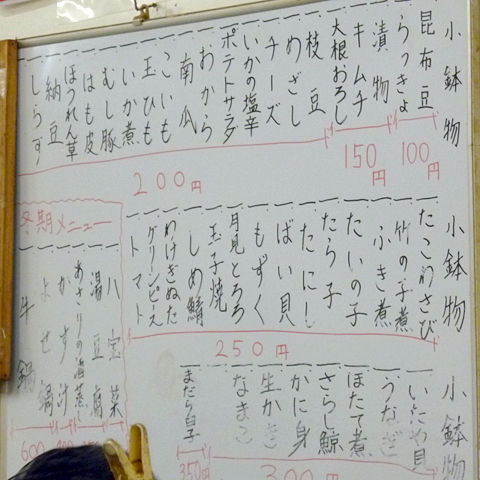 小鉢物
昆布豆
らっきょ
漬物
キムチ
大根おろし
枝豆
めざし
チーズ
いかの塩辛
ポテトサラダ
おから
南瓜
こいも
玉ひも
いか煮
むし豚
はも皮
ほうれん草
納豆
しらす
100円
150円
200円
小鉢物
たこわさび
竹の子煮
ふき煮
たいの子
たら子
たにし
ばい貝
もずく
月見とろろ
玉子焼
しめ鯖
わけぎぬた
グリーンピース
トマト
250円
小鉢物
いたや貝
うなぎ
ほたて煮
さらし鯨
かに身
生かき
なまこ
まだら白子
300円
350円
冬期メニュー
八宝菜
湯豆腐
あさりの酒蒸し
かす汁
よせ鍋
牛鍋
600